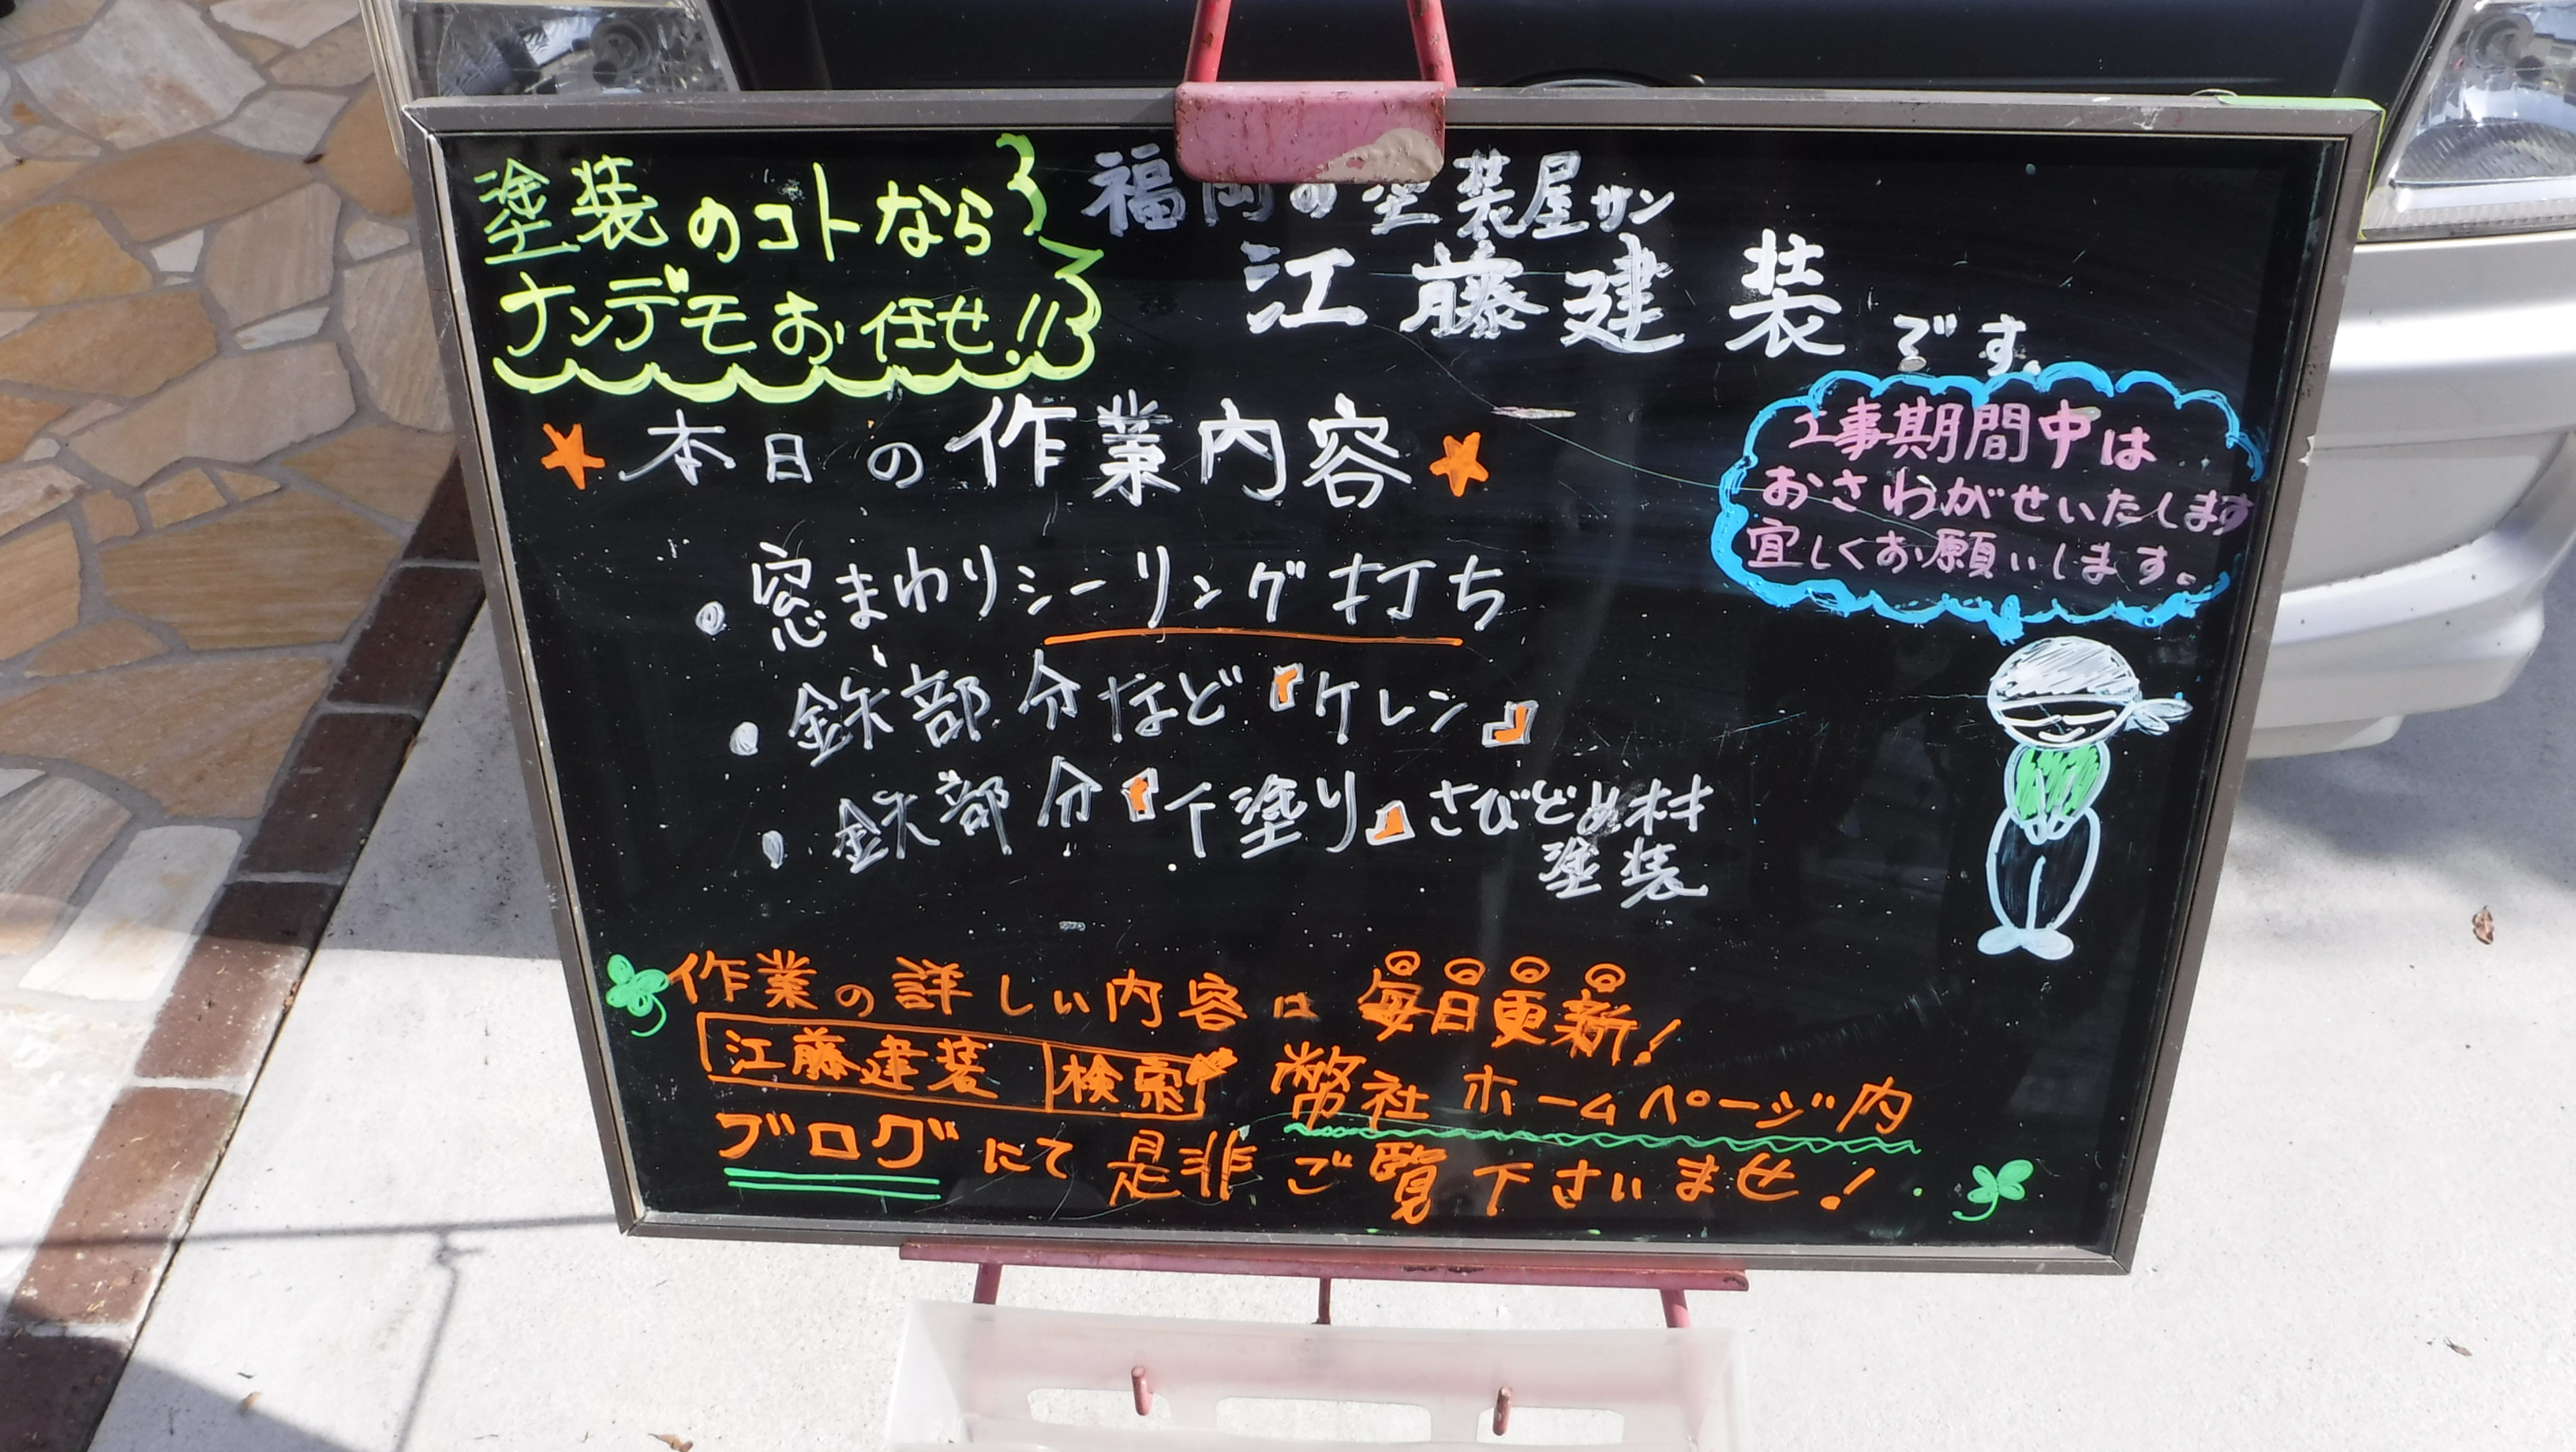 塗装のコトなら
ナンデモお任せ!!
福岡の塗装屋サン
江藤建装です。
★本日の作業内容★
工事期間中は
おさわがせいたします
宜しくお願いします。
・窓まわりシーリング打ち
・鉄部分など『ケレン』
・鉄部分『下塗り』さびどめ材
塗装
作業の詳しい内容は毎日更新!
江藤建装 検索 幣社ホームページ内
ブログにて是非ご覧下さいませ!